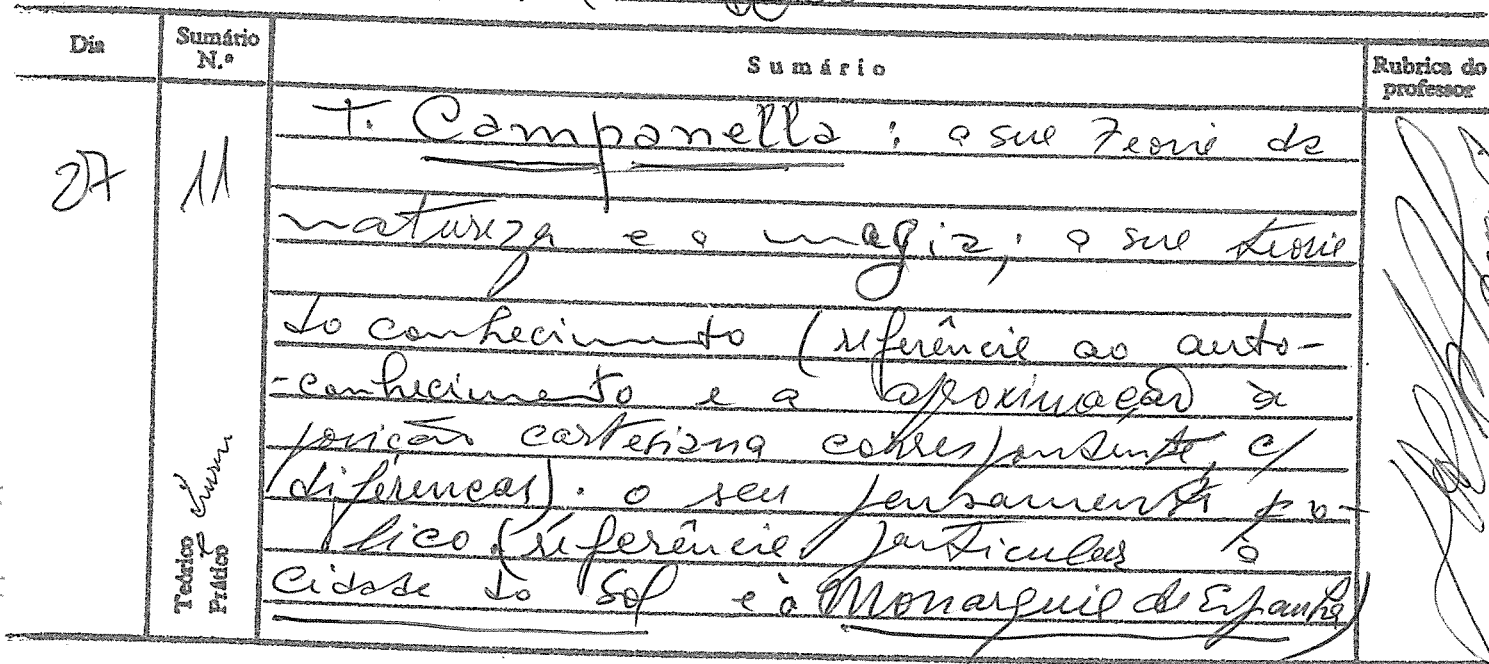 Dia
Sumário N.º
Sumário
Rubrica do professor
27
11
T. Campanella : a sua Teoria da
natureza e a magia; a sua teoria
do conhecimento (referência ao auto-
-conhecimento e a aproximação à
posição cartesiana correspondente, c/
diferenças). o seu pensamento po-
lítico (referência particular à
Cidade do Sol e à Monarquia de Espanha)
Teórico
Prático